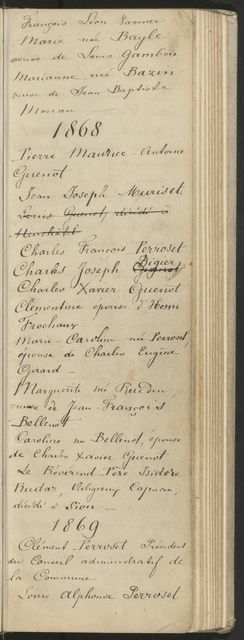 François Léon Varnier
Marie née Bayle
veuve de Louis Gambon
Marianne née Bazin
veuve de Jean Baptiste
Moreau
1868
Pierre Maurice-Antoine
Guenot
Jean Joseph Muriset
Louis Guenot, décédé à
Charles François Perroset
Charles Joseph Digier
Charles Xavier Guenot
Clémentine épouse d'Henri
Frochaux
Marie-Caroline née Perroset
épouse de Charles Eugène
Girard
Marguerite née
veuve de Jean-François
Bellenot
Caroline née Bellenot, épouse
de Charles Xavier Guenot
Le Révérend Père Isidore
Religieux Capucin,
décédé à
1869
Clément Perroset Président
du Conseil administratif de
la Commune
Louis Alphonse Perroset